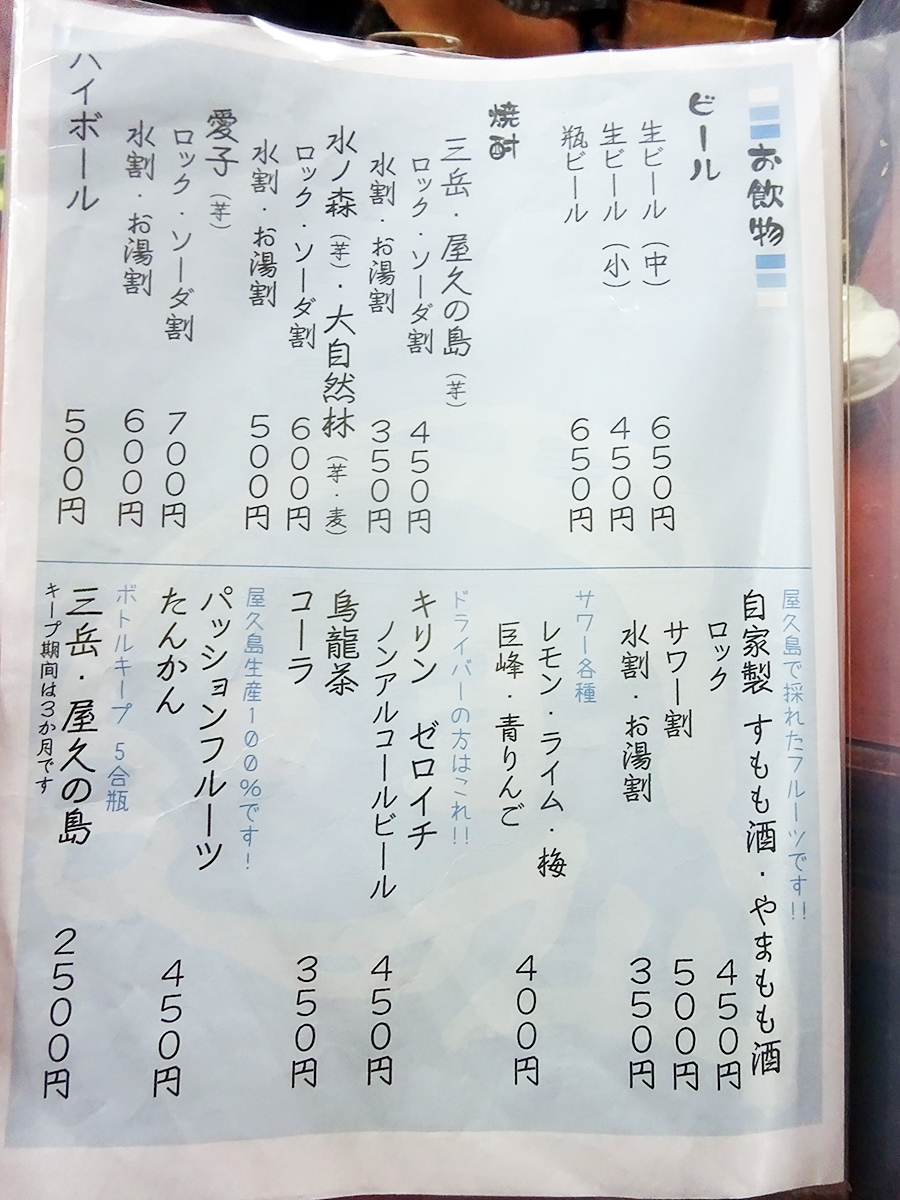 お飲物
ビール
生ビール（中） 650円
生ビール（小） 450円
瓶ビール 650円
焼酎
三岳・屋久の島（芋）
ロック・ソーダ割 450円
水割・お湯割 350円
水ノ森（芋）・大自然林（芋・麦）
ロック・ソーダ割 600円
水割・お湯割 500円
愛子（芋）
ロック・ソーダ割 700円
水割・お湯割 600円
ハイボール 500円
屋久島で採れたフルーツです!!
自家製 すもも酒・やまもも酒
ロック 450円
サワー割 500円
水割・お湯割 350円
サワー各種
レモン・ライム・梅
巨峰・青りんご 400円
ドライバーの方はこれ!!
キリン ゼロイチ
ノンアルコールビール 450円
烏龍茶
コーラ 350円
屋久島生産100%です!
パッションフルーツ
たんかん 450円
ボトルキープ 5合瓶
三岳・屋久の島 2500円
キープ期間は3か月です